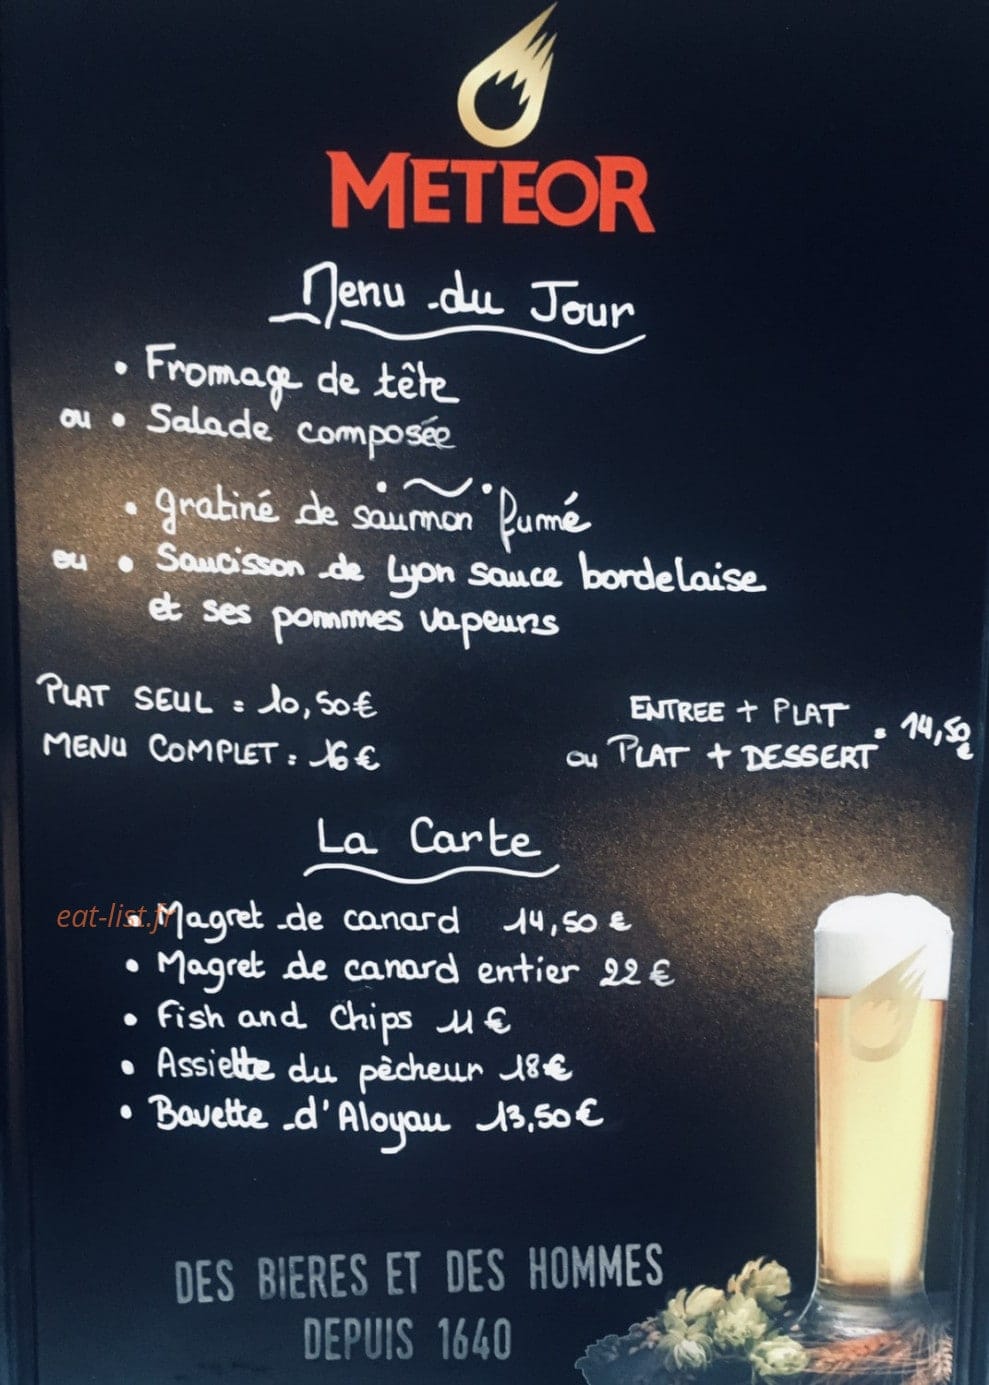 METEOR
Menu du Jour
• Fromage de tête
ou • Salade composée
• gratiné de saumon fumé
ou • Saucisson de Lyon sauce bordelaise
et ses pommes vapeurs
PLAT SEUL = 10,50€
MENU COMPLET : 16€
ENTREE + PLAT
ou PLAT + DESSERT = 14,50€
La Carte
eat-list.fr
• Magret de canard 14,50 €
• Magret de canard entier 22€
• Fish and Chips 11€
• Assiette du pêcheur 18€
• Bavette d'Aloyau 13,50€
DES BIERES ET DES HOMMES
DEPUIS 1640